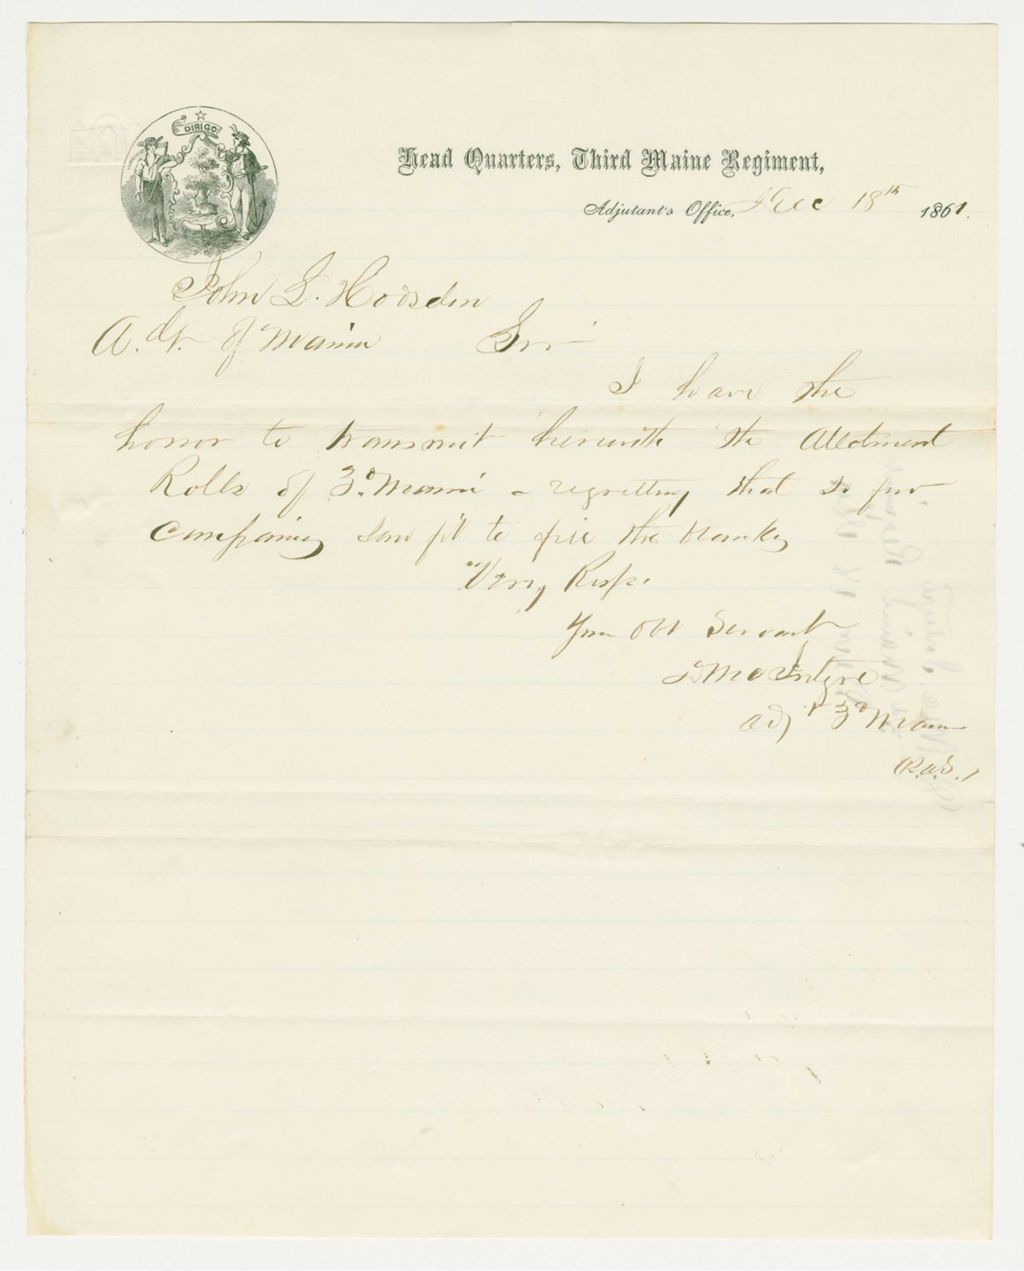 DIRIGO
Head Quarters, Third Maine Regiment,
Adjutant's Office, Dec 18th 1861.
John L. Hodsdon
A. Maine Sir
I have the
honor to transmit herewith the Allotment
Rolls of 3d Maine - regretting that so few
companies saw fit to fill the blanks
Very Resp.
Your Obt Servant
McIntyre
Adjt 3d Maine